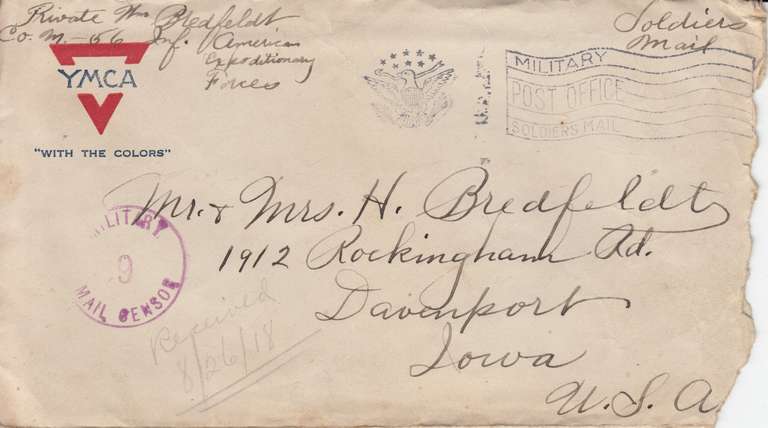 Private Wm Bredfeldt
Co. M. - 56 Inf. American
Expeditionary
Forces
Soldiers
Mail
YMCA
"WITH THE COLORS"
MILITARY
POST OFFICE
SOLDIERS MAIL
Mr. & Mrs. H. Bredfeldt
1912 Rockingham Rd.
Davenport
Iowa
U. S. A.
MILITARY
9
MAIL CENSOR
Received
8/26/18